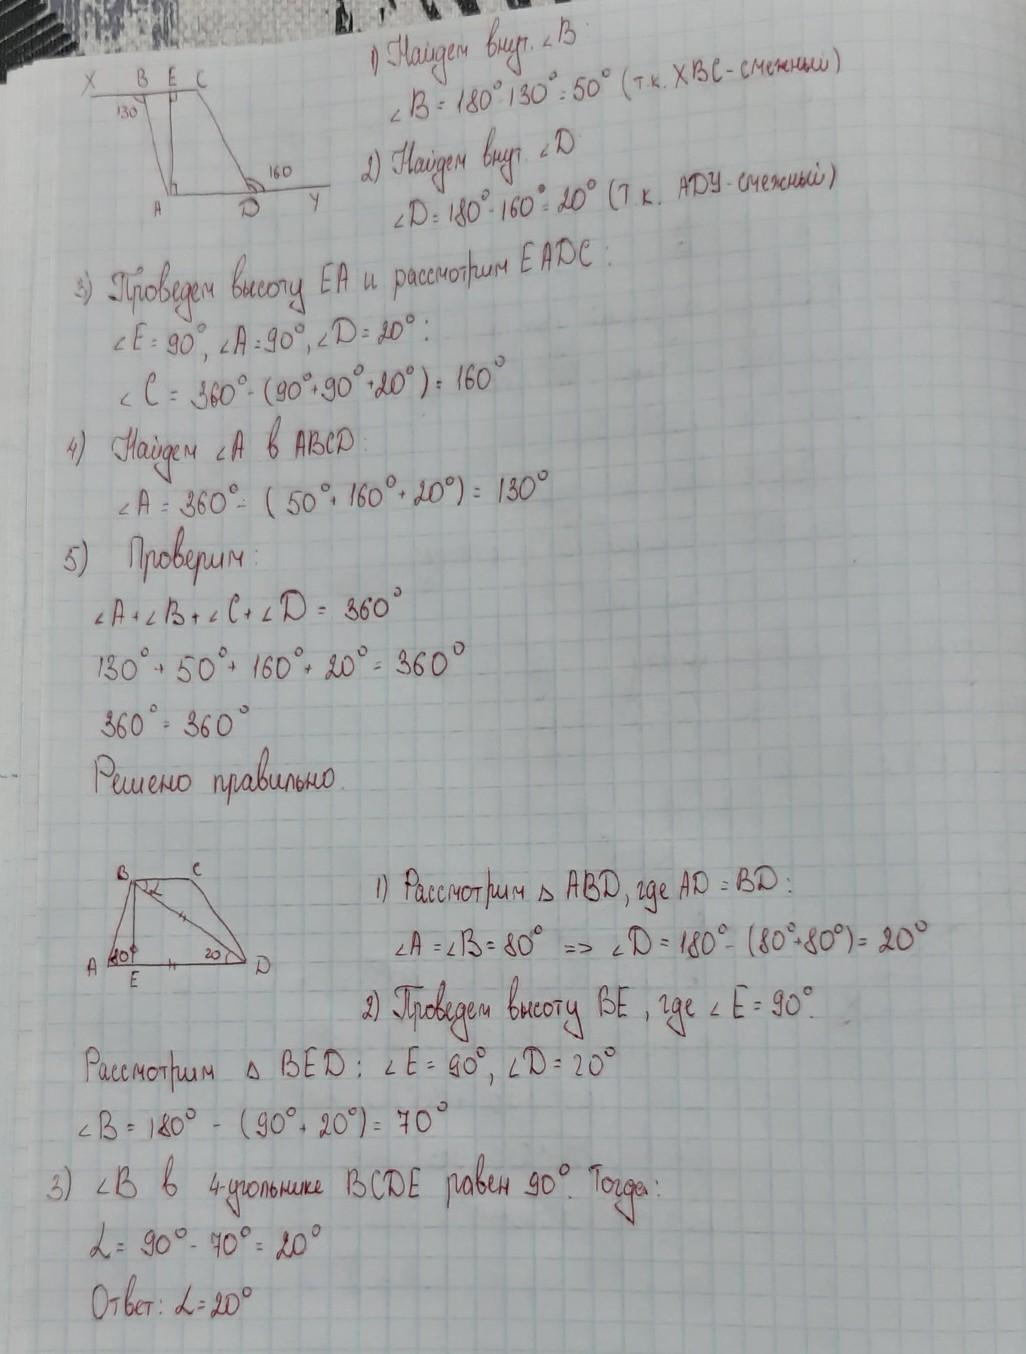 X B E C
130°
160
A D Y
1) Найдем внут. ∠B:
∠B = 180° - 130° = 50° (т.к. XBC - смежный)
2) Найдем внут. ∠D
∠D = 180° - 160° = 20° (т.к. ADY - смежный)
3) Проведем высоту EA и рассмотрим EADC:
∠E = 90°, ∠A = 90°, ∠D = 20°:
∠C = 360° - (90° + 90° + 20°) = 160°
4) Найдем ∠A в ABCD:
∠A = 360° - (50° + 160° + 20°) = 130°
5) Проверим:
∠A + ∠B + ∠C + ∠D = 360°
130° + 50° + 160° + 20° = 360°
360° = 360°
Решено правильно.
B C
α
A 80° 20 D
E
1) Рассмотрим Δ ABD, где AD = BD:
∠A = ∠B = 80° => ∠D = 180° - (80° + 80°) = 20°
2) Проведем высоту BE, где ∠E = 90°.
Рассмотрим Δ BED: ∠E = 90°, ∠D = 20°
∠B = 180° - (90° + 20°) = 70°
3) ∠B в 4-угольнике BCDE равен 90°. Тогда:
α = 90° - 70° = 20°
Ответ: α = 20°